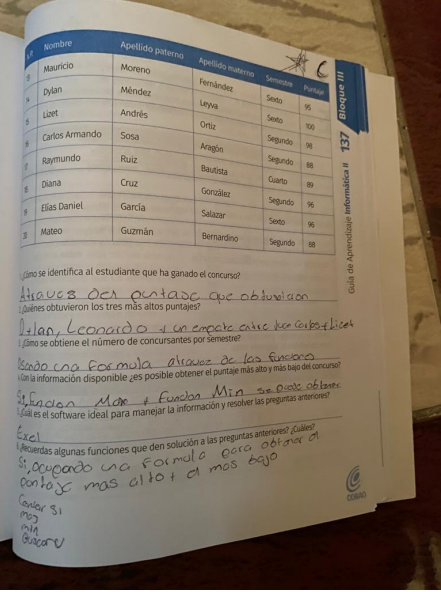 N.P. Nombre Apellido paterno Apellido materno Semestre Puntaje
13 Mauricio Moreno Fernández Sexto 95
14 Dylan Méndez Leyva Sexto 100
15 Lizet Andrés Ortiz Segundo 98
16 Carlos Armando Sosa Aragón Segundo 88
17 Raymundo Ruiz Bautista Cuarto 89
18 Diana Cruz González Segundo 96
19 Elías Daniel García Salazar Sexto 96
20 Mateo Guzmán Bernardino Segundo 88
¿Cómo se identifica al estudiante que ha ganado el concurso?
Atraves Del puntaje que obtuvieron
¿Quiénes obtuvieron los tres más altos puntajes?
Dylan, Leonardo y un empate entre Juan Carlos y Licet
¿Cómo se obtiene el número de concursantes por semestre?
Usando una formula atravez de las funciones
¿Con la información disponible ¿es posible obtener el puntaje más alto y más bajo del concurso?
Si, funcion Max y funcion Min se puede obtener
¿Cuál es el software ideal para manejar la información y resolver las preguntas anteriores?
Exel
¿Recuerdas algunas funciones que den solución a las preguntas anteriores? ¿Cuáles?
Si, ocupando una formula para obtener el
puntaje mas alto y el mas bajo
Contar si
max
min
Buscarv
COBAO
Guía de Aprendizaje Informática II 137 Bloque III